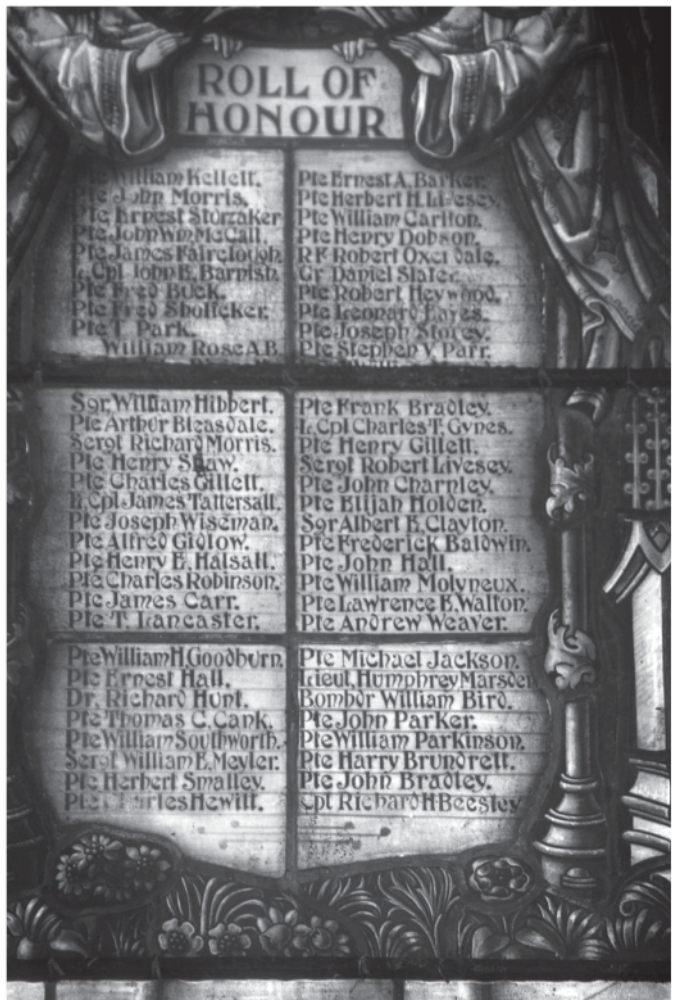 ROLL OF
HONOUR
Pte William Kellett.
Pte John Morris.
Pte Ernest Storzaker
Pte John Wm McCall.
Pte James Fairclough.
L. Cpl John E. Barnish.
Pte Fred Buck.
Pte Fred Sholicker.
Pte T. Park.
William Rose A.B.
Sgr. William Hibbert.
Pte Arthur Bleasdale.
Sergt Richard Morris.
Pte Henry Shaw.
Pte Charles Gillett.
L. Cpl James Tattersall.
Pte Joseph Wiseman.
Pte Alfred Gidlow.
Pte Henry E. Halsall.
Pte Charles Robinson.
Pte James Carr.
Pte T. Lancaster.
Pte William H. Goodburn.
Pte Ernest Hall.
Dr. Richard Hunt.
Pte Thomas C. Cank.
Pte William Southworth.
Sergt William E. Meyler.
Pte Herbert Smalley.
Pte Charles Hewitt.
Pte Ernest A. Barker.
Pte Herbert H. Livesey.
Pte William Carlton.
Pte Henry Dobson.
RF Robert Oxendale.
Gr Daniel Slater.
Pte Robert Heywood.
Pte Leonard Eaves.
Pte Joseph Storey.
Pte Stephen V. Parr.
Pte Frank Bradley.
L. Cpl Charles T. Gynes.
Pte Henry Gillett.
Sergt Robert Livesey.
Pte John Charnley.
Pte Elijah Holden.
Sgr Albert E. Clayton.
Pte Frederick Baldwin.
Pte John Hall.
Pte William Molyneux.
Pte Lawrence E. Walton.
Pte Andrew Weaver.
Pte Michael Jackson.
Lieut. Humphrey Marsden
Bombdr William Bird.
Pte John Parker.
Pte William Parkinson.
Pte Harry Brundrett.
Pte John Bradley.
Cpl Richard H Beesley